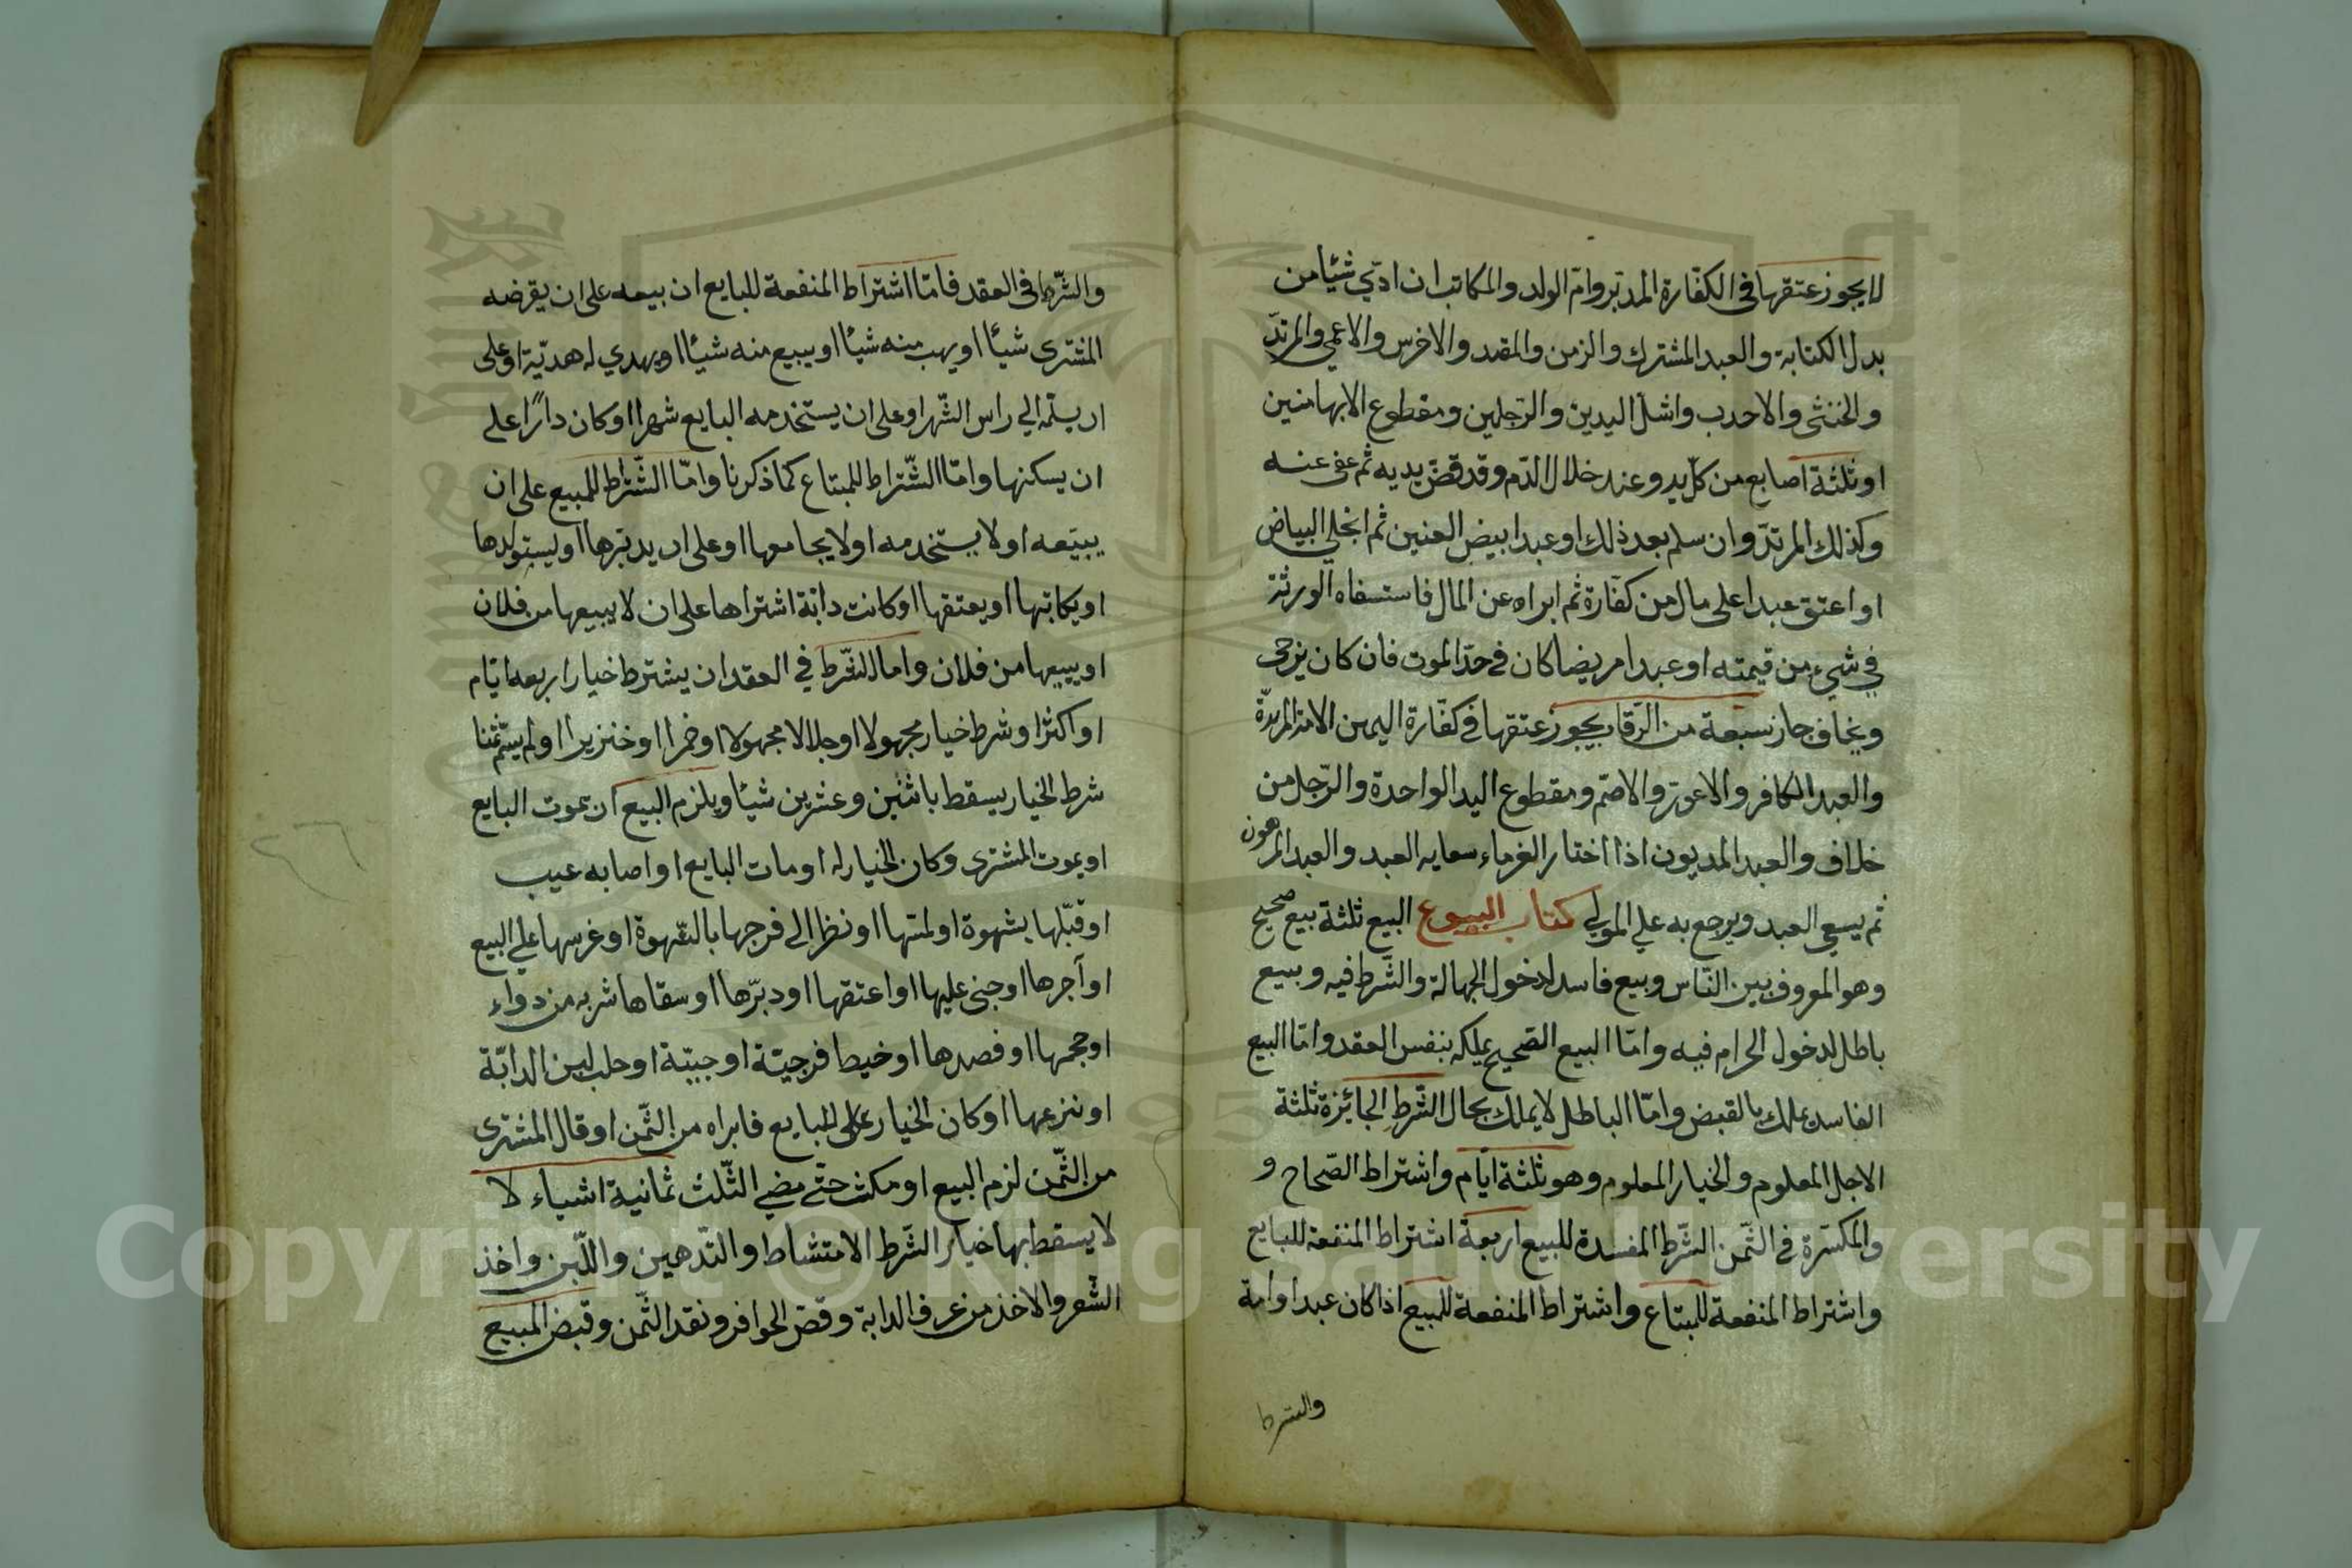 لا يجوز عتقها في الكفّارة المدبّر وامّ الولد والمكاتب ان ادّي شيئا من
بدل الكتابة والعبد المشترك والزمن والمقعد والاخرس والاعمي والمرتدّ
والخنثي والاحدب واشلّ اليدين والرّجلين ومقطوع الابهامين
او ثلثة اصابع من كلّ يد وعند حلال الدّم وقد قضي بدمه ثم عفي عنه
وكذلك المرتدّ وان سلم بعد ذلك او عبدا ابيض العينين ثم انجلي البياض
او اعتق عبدا علي مال من كفّارة ثم ابراه عن المال فاستسعاه الورثة
في شيء من قيمته او عبدا مريضا كان في حدّ الموت فان كان يرجي
ويخاف جاز سبعة من الرّقاب يجوز عتقها في كفّارة اليمين الامة المرتدّة
والعبد الكافر والاعور والاصمّ ومقطوع اليد الواحدة والرّجل من
خلاف والعبد المديون اذا اختار الغرماء سعاية العبد والعبد المرهون
ثم يسعي العبد ويرجع به علي المولي كتاب البيوع البيع ثلثة بيع صحيح
وهو المعروف بين النّاس وبيع فاسد لدخول الجهالة والشّرط فيه وبيع
باطل لدخول الحرام فيه وامّا البيع الصّحيح يملكه بنفس العقد وامّا البيع
الفاسد يملك بالقبض وامّا الباطل لا يملك بحال الشّرط الجائزة ثلثة
الاجل المعلوم والخيار المعلوم وهو ثلثة ايّام واشتراط الصّحاح و
والمكسّرة في الثّمن الشّرط المفسدة للبيع اربعة اشتراط المنفعة للبايع
واشتراط المنفعة للمبتاع واشتراط المنفعة للمبيع اذا كان عبدا او امة
والشرط
والشّرط في العقد فامّا اشتراط المنفعة للبايع ان بيعه علي ان يقرضه
المشتري شيئا او يهب منه شيئا او يبيع منه شيئا او يهدي له هديّة او علي
ان يسلّمه الي راس الشّهر او علي ان يستخدمه البايع شهرا او كان دارًا علي
ان يسكنها وامّا الشّراط للمبتاع كما ذكرنا وامّا الشّراط للمبيع علي ان
يبيعه او لا يستخدمه او لا يجامعها او علي ان يدبّرها او ليستولدها
او يكاتبها او يعتقها او كانت دابّة اشتراها علي ان لا يبيعها من فلان
او يبيعها من فلان واما الشّرط في العقد ان يشترط خيارا اربعه ايّام
او اكثر او شرط خيار مجهولا او جلالا مجهولا او خمرا او خنزيرا او لم يسمّ ثمنا
شرط الخيار يسقط باثنين وعشرين شيئا ويلزم البيع ان يموت البايع
او يموت المشتري وكان الخيار له او مات البايع او اصابه عيب
او قبّلها بشهوة او لمسها او نظر الي فرجها بالشّهوة او غرسها علي البيع
او آجرها او جني عليها او اعتقها او دبّرها او سقاها شربه من دواء
او حجمها او فصدها او خيط فرجيّة او جبّة او حلب لبن الدابّة
او نزعها او كان الخيار علي البايع فابراه من الثّمن او قال المشتري
من الثّمن لزم البيع او مكث حتّي مضي الثّلث ثمانية اشياء لا
لا يسقط بها خيار الشّرط الامتشاط والتّدهين واللّبن واخذ
الشّعر والاخذ من عرف الدابة وقصّ الحوافر ونقد الثّمن وقبض المبيع
Copyright © King Saud University